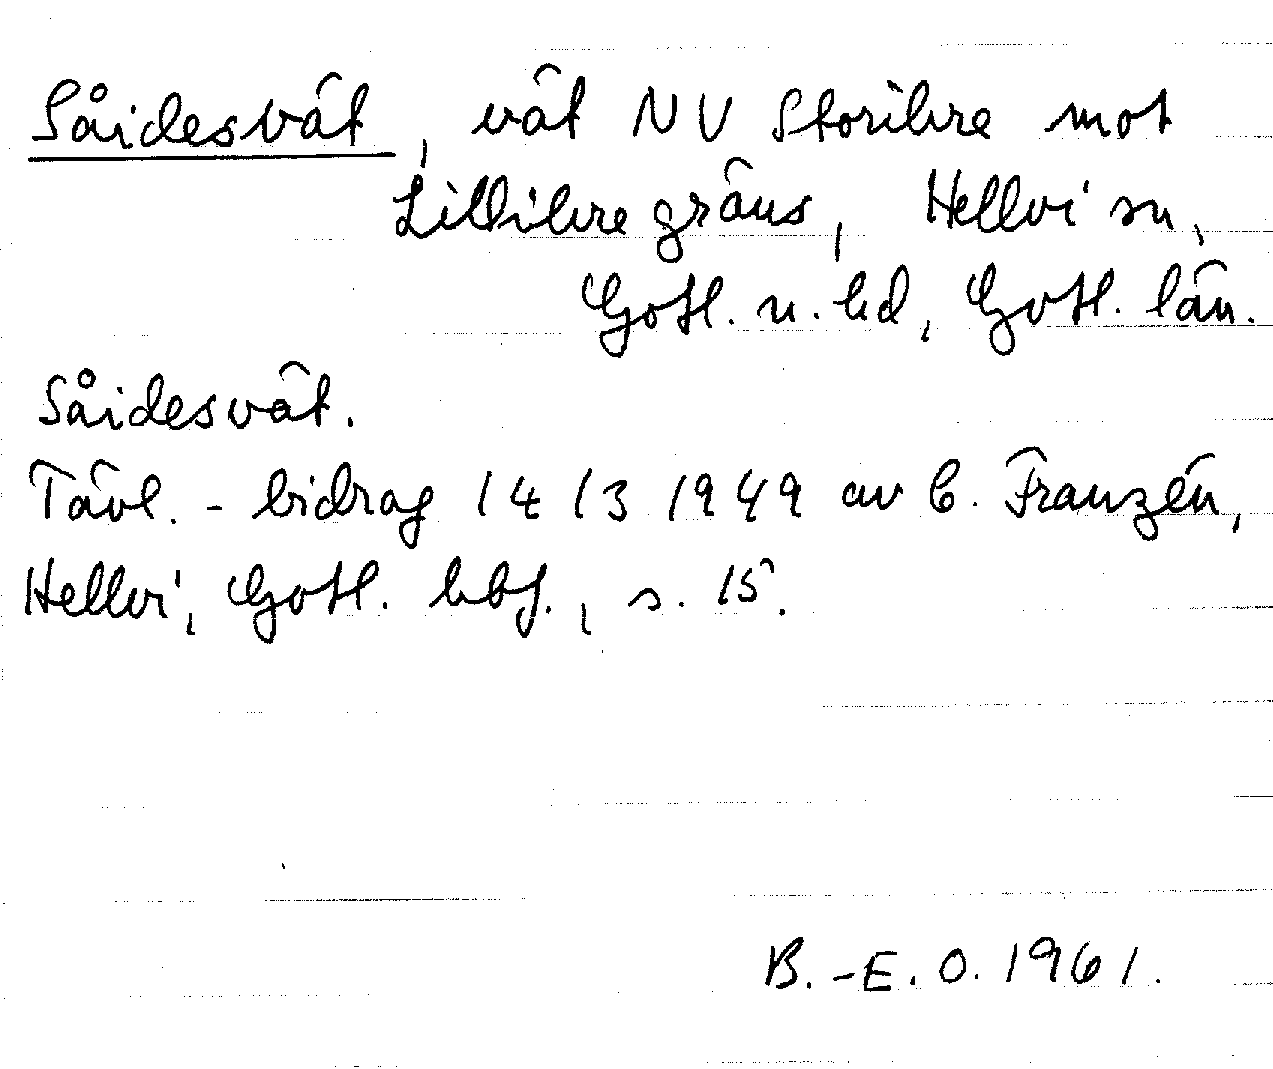 Såidesvät, vät NV Storihre mot
Lillihre gräns, Hellvi sn,
Gotl. n. hd, Gotl. län.
Såidesvät.
Tävl.-bidrag 14/3 1949 av C. Franzén,
Hellvi, Gotl. hbf., s. 15.
B.-E. O. 1961.